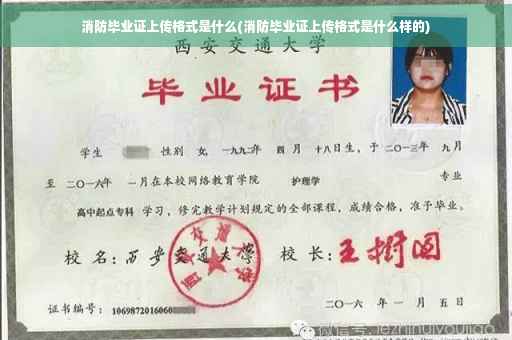 消防毕业证上传格式是什么(消防毕业证上传格式是什么样的)
西安交通大学
毕业证书
学生 性别 女, 一九九二年 四月 十八日生, 于二〇一三年 九月
至 二〇一六年 一月在本校网络教育学院 护理学 专业
高中起点专科 学习, 修完教学计划规定的全部课程, 成绩合格, 准予毕业。
校名: 西安交通大学 校长: 王树国
西安交通大学
证书编号: 1069872016060
二〇一六年 一月 五日
微信号: jezhihuiyoujiao